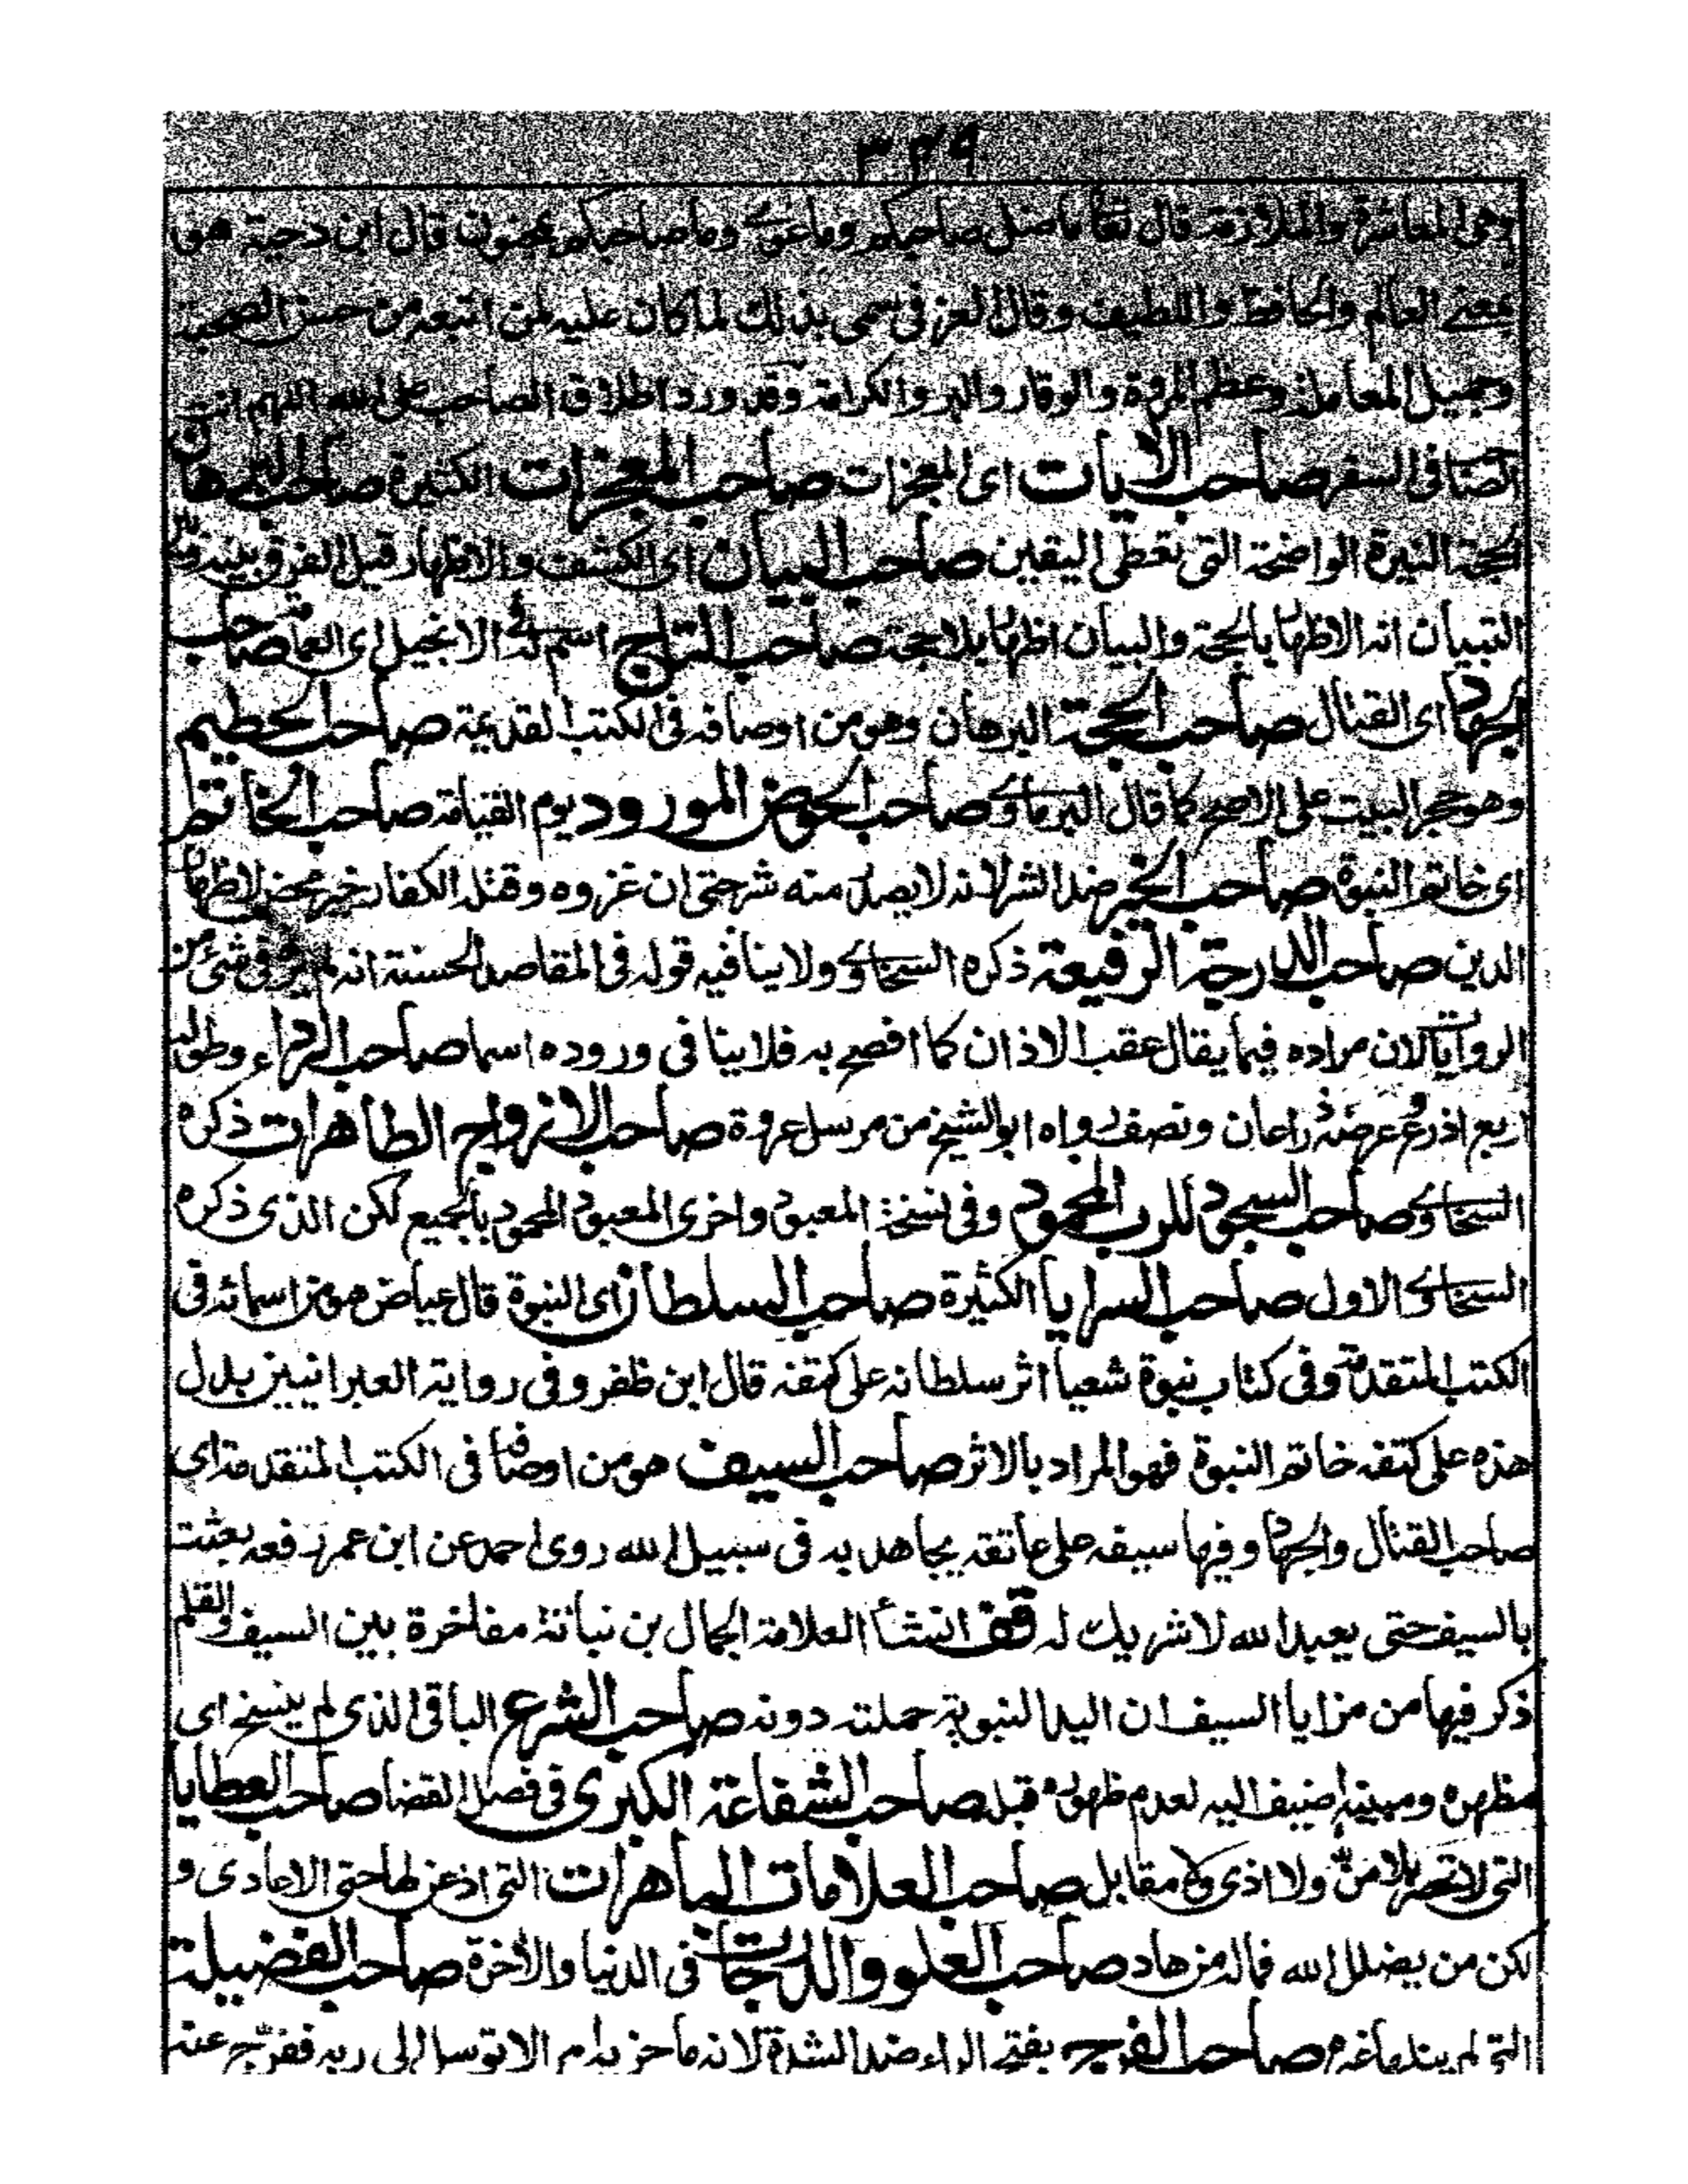 ٣٣٩
وهي المعاشرة والملازمة قال تعا ما ضل صاحبكم وما غوى وما صاحبكم بمجنون قال ابن دحية هو
بمعنى العالم والحافظ واللطيف وقال العزفى سمى بذلك لما كان عليه لمن اتبعه من حسن الصحبة
وجميل المعاملة وعظم المروة والوقار والبر والكرامة وقد ورد اطلاق الصاحب على الله اللهم انت
الصا فى السفر صاحب الآيات اى المعجزات صاحب المعجزات الكثيرة صاحب البرهان
الحجة النيرة الواضحة التى تعطى اليقين صاحب البيان اى الكشف والاظهار قيل الفرق بينه وبين
التبيان انه الاظهار بالحجة والبيان اظهار بلا حجة صاحب التاج اسمه فى الانجيل اى العمامة صاحب
الجهاد اى القتال صاحب الحجة البرهان وهو من اوصافه فى الكتب القديمة صاحب الحطيم
وهو حجر البيت على الاصح كما قال البرماوى صاحب الحوض المورود يوم القيامة صاحب الخاتم
اى خاتم النبوة صاحب الخير ضد الشر لانه لا يصل منه شر حتى ان غزوه وقتله الكفار خير محض لاظهار
الدين صاحب الدرجة الرفيعة ذكره السخاوى ولا ينافيه قوله فى المقاصد الحسنة انه لم يره فى شئ من
الروايات لان مراده فيما يقال عقب الاذان كما افصح به فلا ينافى وروده اسما صاحب الرداء وطوله
اربع اذرع وعرضه ذراعان ونصف رواه ابو الشيخ من مرسل عروة صاحب الازواج الطاهرات ذكره
السخاوى صاحب السجود للرب المحمود وفى نسخة المعبود واخرى المعبود المحمود بالجميع لكن الذى ذكره
السخاوى الاول صاحب السرايا الكثيرة صاحب السلطان اى النبوة قال عياض هو من اسمائه فى
الكتب المتقدمة وفى كتاب نبوة شعيا اثر سلطانه على كتفه قال ابن ظفر وفى رواية العبرانيين بدل
هذه على كتفه خاتم النبوة فهو المراد بالاثر صاحب السيف هو من اوصافه فى الكتب المتقدمة اى
صاحب القتال والجهاد وفيها سيفه على عاتقه يجاهد به فى سبيل الله روى احمد عن ابن عمر رفعه بعثت
بالسيف حتى يعبد الله لا شريك له قف انشأ العلامة الجمال بن نباتة مفاخرة بين السيف والقلم
ذكر فيها من مزايا السيف ان اليد النبوية حملته دونه صاحب الشرع الباقى الذى لم ينسخ اى
مظهره ومبينه اضيف اليه لعدم ظهوره قبله صاحب الشفاعة الكبرى فى فصل القضا صاحب العطايا
التى لا تحصر بلا من ولا اذى ولا مقابل صاحب العلامات الباهرات التى اذعن لها حتى الاعادى و
لكن من يضلل الله فماله من هاد صاحب العلو والدرجات فى الدنيا والآخرة صاحب الفضيلة
التى لم ينلها غيره صاحب الفرج بفتح الراء ضد الشدة لانه ما حزبه امر الا توسل الى ربه ففرج عنه